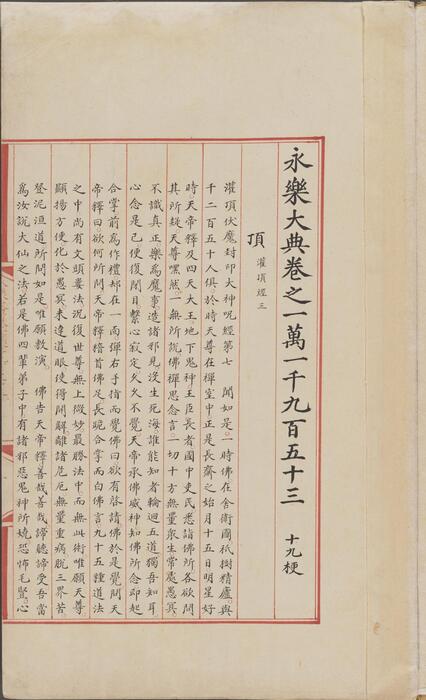 永樂大典卷之一萬一千九百五十三 十九梗
頂 灌頂經三
灌頂伏魔封印大神呪經第七 聞如是一時佛在舍衛國祇樹精廬與
千二百五十人俱於時天尊在禪室中正是長齋之始月十五日明星好
時天帝釋及四天大王地下鬼神王臣長者國中吏民悉詣佛所各欲問
其所疑天尊嘿然一無所說佛禪思念言一切十方無量衆生常處愚冥
不識真正樂為魔事造諸邪見沒生死海誰能知者輪迴五道獨吾知耳
心念是已便復閉目繫心寂定久久不覺天帝承佛威神知佛所念即起
合掌前為作禮却在一面彈右手指而覺佛曰欲有啓請佛於是覺問天
帝釋曰欲何所問天帝釋稽首佛足長跪合掌而白佛言九十五種道法
之中尚有文頭婁法況復世尊無上微妙最勝法中而無此術唯願天尊
顯揚方便化於愚冥未達道眼使得開解離諸危厄無量重病脫三界苦
登泥洹道所問如是唯願敷演 佛告天帝釋善哉善哉諦聽諦受吾當
為汝說大仙之法若是佛四輩弟子中有諸邪惡鬼神所嬈恐怖毛豎心